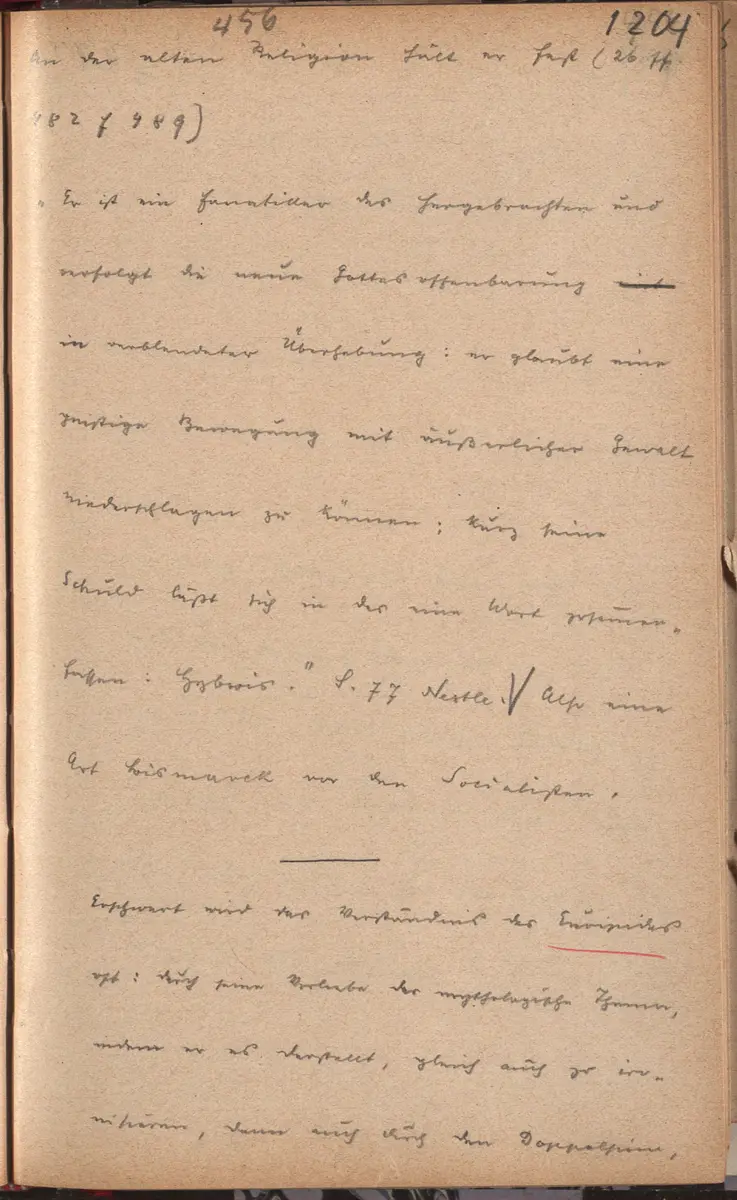 456
1204
An der alten Religion hält er fest (26 ff
482 f 489)
„Er ist ein Fanatiker des Hergebrachten und
verfolgt die neue Gottesoffenbarung
in verblendeter Überhebung: er glaubt eine
geistige Bewegung mit äußerlicher Gewalt
niederschlagen zu können; kurz seine
Schuld läßt sich in das eine Wort zusammen-
fassen: Hybris." S. 77 Nestle. Also eine
Art Bismarck vor den Socialisten.
Erschwert wird das Verständnis des Euripides
oft: durch seine Vorliebe das mythologische Thema,
indem er es darstellt, gleich auch zu iro-
nisieren, dann auch durch den Doppelsinn,